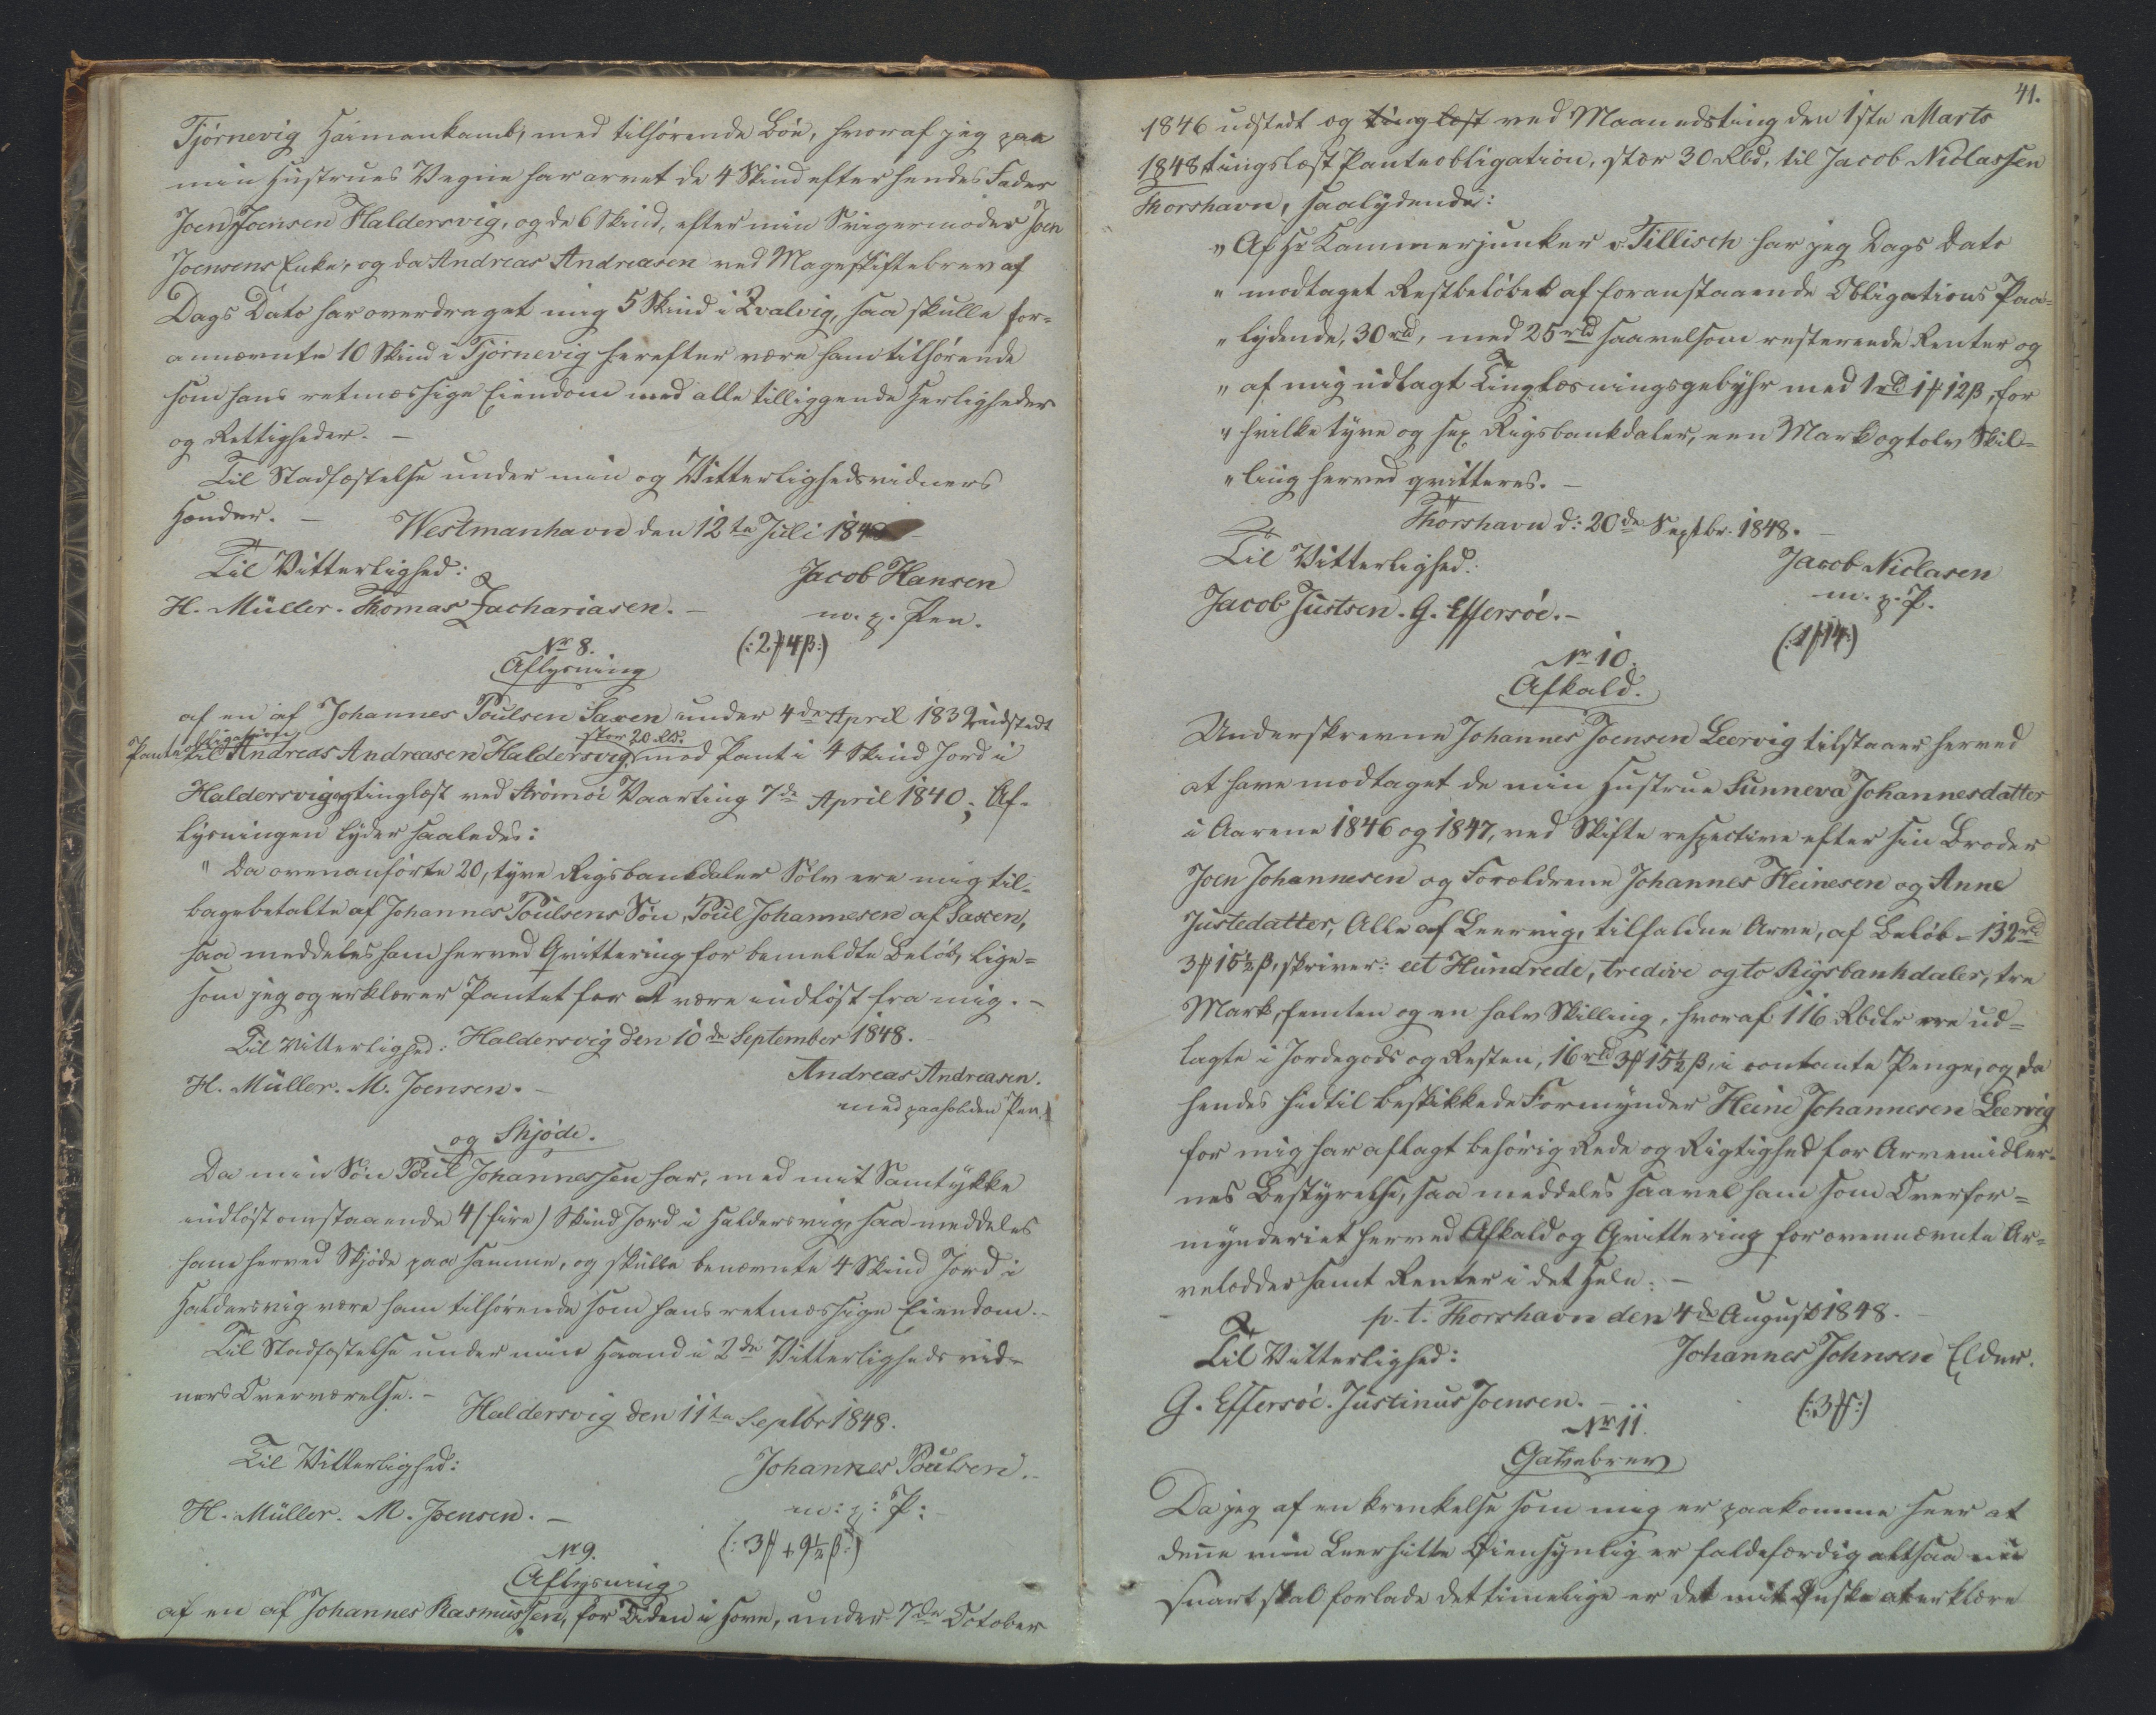 Tjørnevig Heimankamb, med tilhørende Böe, hvoraf jeg paa
min Hustrues Vegne har arvet de 4 Skind efter hendes Fader
Joen Joensen Haldersvig, og de 6 Skind, efter min Svigermoder Joen
Joensens Enke, og da Andreas Andreasen ved Mageskiftebrev af
Dags Dato har overdraget mig 5 Skind i Qvalvig, saa skulle for-
annævnte 10 Skind i Tjørnevig herefter være ham tilhørende
som hans retmæssige Eiendom med alle tilliggende Herligheder
og Rettigheder. –
Til Stadfæstelse under min og Vitterlighedsvidners
Hænder. – Westmanhavn den 12te Juli 184
Til Vitterlighed: Jacob Hansen
H. Müller. Thomas Zachariasen. – m. p. Pen.
Nr 8. (: 2 # 4 β :)
Aflysning
af en af Johannes Poulsen Saxen under 4de April 1839 udstedt
Panteobligation stor 20 Rbd.
til Andreas Andreasen Haldersvig, mod Pant i 4 Skind Jord i
Haldersvig og tinglæst ved Strömöe Vaarting 7de April 1840; Af-
lysningen lyder saaledes:
" Da ovenanførte 20, tyve Rigsbankdaler Sølv ere mig til-
bagebetalte af Johannes Poulsens Søn, Poul Johannesen af Saxen,
saa meddeles ham herved Qvittering for bemeldte Beløb, lige-
som jeg og erklærer Pantet for at være indløst fra mig. –
Til Vitterlighed: Haldersvig den 10de September 1848.
H. Müller. M. Joensen. – Andreas Andreasen.
med paaholden Pen.
og Skjøde.
Da min Søn Poul Johannessen har, med mit Samtykke
indløst omstaaende 4 (fire) Skind Jord i Haldersvig, saa meddeles
ham herved Skjøde paa samme, og skulle benævnte 4 Skind Jord i
Haldersvig være ham tilhørende som hans retmæssige Eiendom. –
Til Stadfæstelse under min Haand i 2de Vitterligheds vid-
ners Overværelse. –
Haldersvig den 11te Septbr 1848.
Til Vitterlighed: Johannes Poulsen. –
H. Müller. M. Joensen. – m: p: P:
Nr 9. (: 3 # + 9½ β :)
Aflysning
af en af Johannes Rasmussen, for Tiden i Hove, under 7de October
41.
1846 udstedt og tinglæst ved Maanedsting den 1ste Marts
1848 tingslæst Panteobligation, stor 30 Rbd, til Jacob Niclassen
Thorshavn, saalydende:
" Af Hr Kammerjunker v. Tillisch har jeg Dags Dato
" modtaget Restbeløbet af foranstaaende Obligations Paa-
" lydende, 30 rd, med 25 rbd saavelsom resterende Renter og
" af mig udlagt Tinglæsningsgebyhr med 1 rd 1 # 12 β, for
" hvilke tyve og sex Rigsbankdaler, een Mark og tolv Skil-
" ling herved qvitteres. –
Thorshavn d: 20de Septbr. 1848. –
Til Vitterlighed: Jacob Niclasen
Jacob Justsen. G. Effersöe. – m. p. P.
Nr 10. (: 1 # 14 :)
Afkald.
Underskrevne Johannes Joensen Leervig tilstaaer herved
at have modtaget de min Hustrue Sunneva Johannesdatter
i Aarene 1846 og 1847, ved Skifte respective efter sin Broder
Joen Johannesen og Forældrene Johannes Heinesen og Anne
Justedatter, Alle af Leervig, tilfaldne Arve, af Beløb – 132 rd
3 # 15½ β, skriver: eet Hundrede, tredive og to Rigsbankdaler, tre
Mark, femten og en halv Skilling, hvoraf 116 Rbdlr ere ud-
lagte i Jordegods og Resten, 16 rbd 3 # 15½ β, i contante Penge, og da
hendes hidtil beskikkede Formynder Heine Johannesen Leervig
for mig har aflagt behörig Rede og Rigtighed for Arvemidler-
nes Bestyrelse, saa meddeles saavel ham som Overfor-
mynderiet herved Afkald og Qvittering for ovennævnte Ar-
velodder samt Renter i det Hele. –
p. t. Thorshavn den 4de August 1848. –
Til Vitterlighed: Johannes Johnsen Elder.
G. Effersöe. Justinus Joensen. – (: 3 # :)
Nr 11.
Gavebrev
Da jeg af en Krænkelse som mig er paakommen seer at
denne min Leerhütte Öiensynlig er faldefærdig altsaa nu
snart skal forlade det timelige er det mit Ønske at erklære